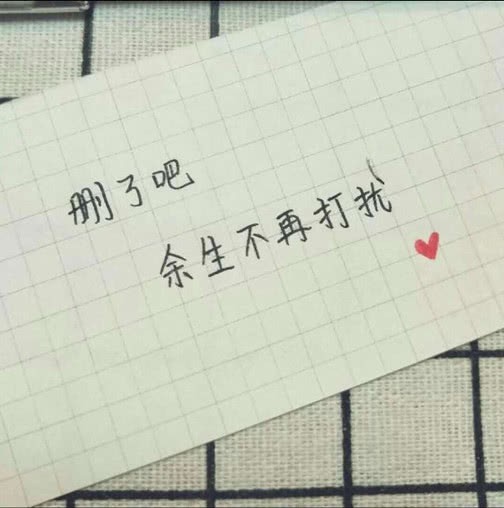 删了吧
余生不再打扰